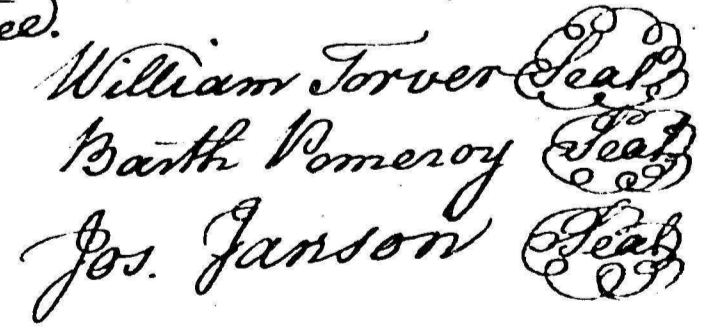 ee.
William Torver Seal
Barth Pomeroy Seal
Jos. Janson Seal